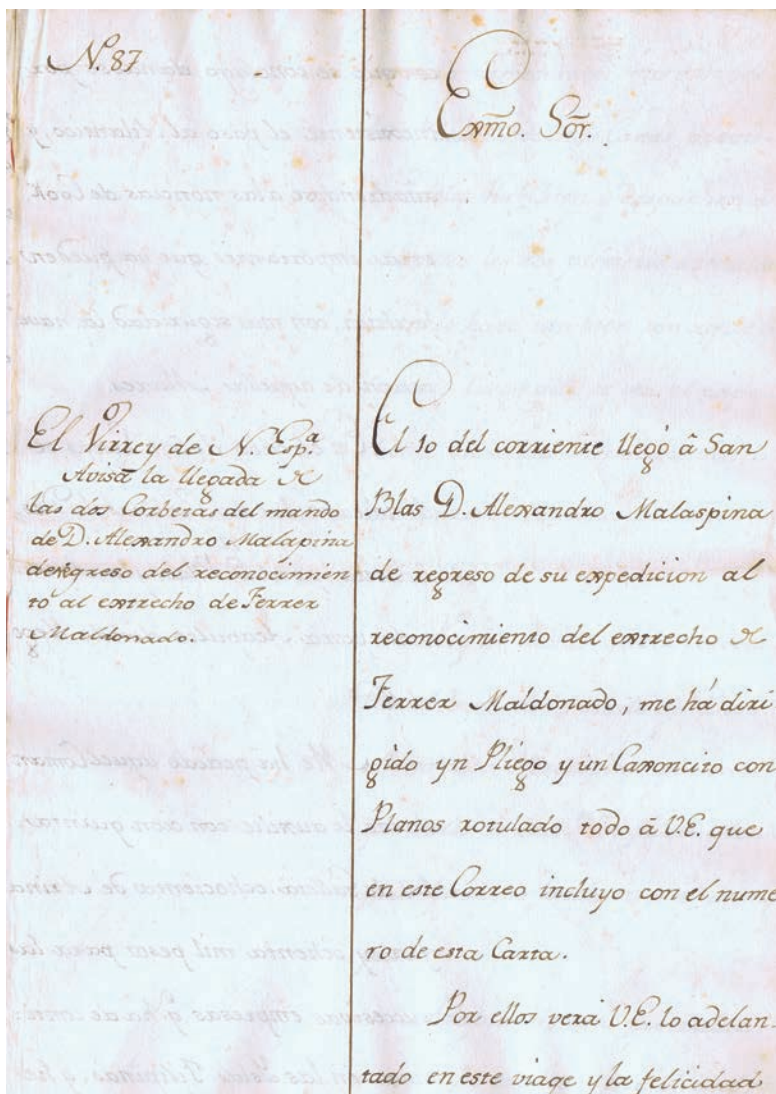 N. 87
Exmo. Sor.
El Virrey de N. Espª
Avisa la llegada de
las dos Corbetas del mando
de D. Alexandro Malapina
de regreso del reconocimien
to al extrecho de Ferrer
Maldonado.
El 10 del corriente llegó â San
Blas D. Alexandro Malaspina
de regreso de su expedicion al
reconocimiento del extrecho de
Ferrer Maldonado, me há diri
gido yn Pliego y un Caxoncito con
Planos rotulado todo â V.E. que
en este Correo incluyo con el nume
ro de esta Carta.
Por ellos verá V.E. lo adelan
tado en este viage y la felicidad